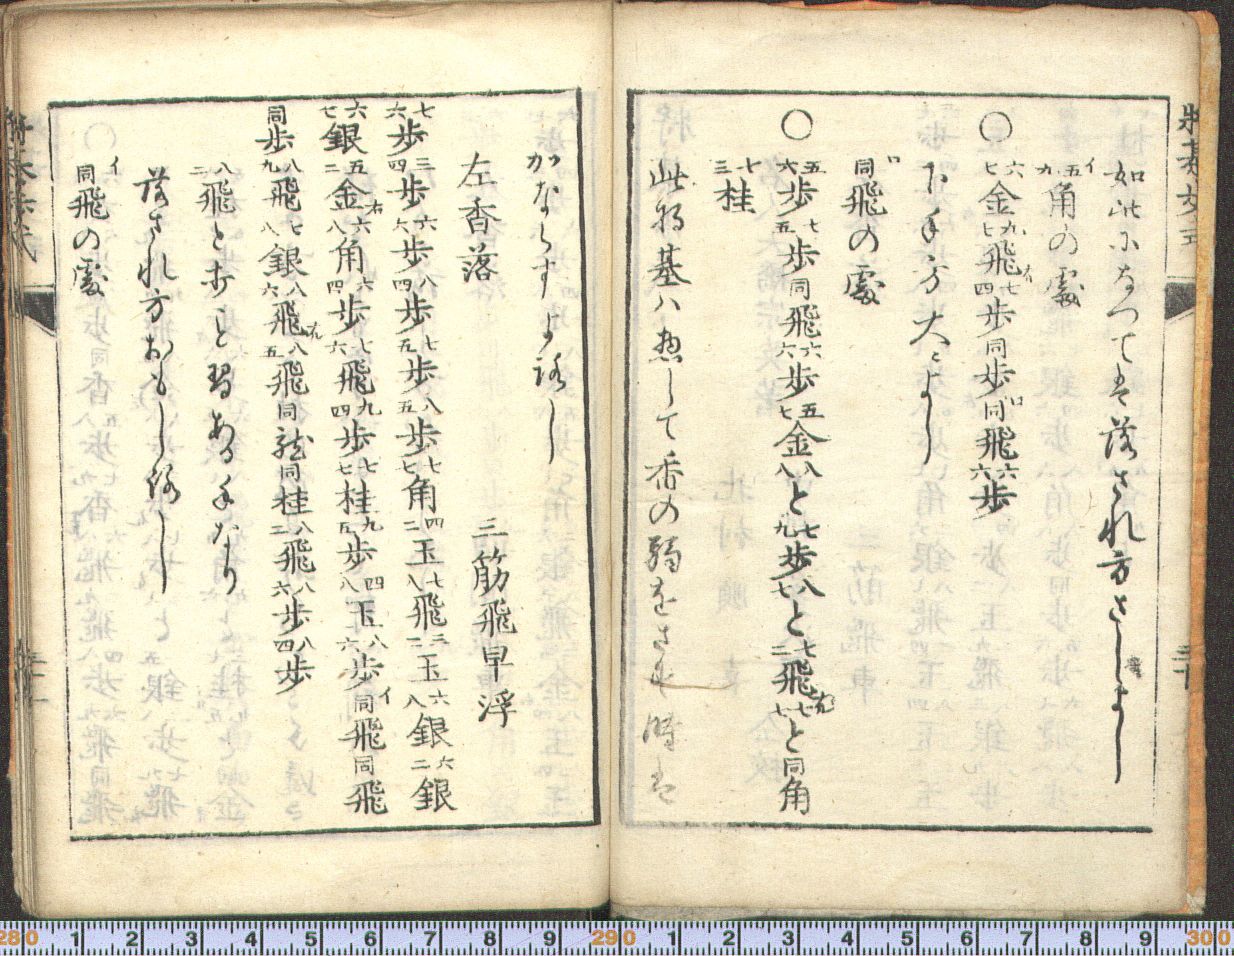 如此になつては落され方さしよし
イ
五九角の處
〇
六七金九七飛右七四歩同歩同飛六六歩
下手方大によし
ロ
同飛の處
〇
五六歩七五歩同飛六六歩五七金八八と七九歩八七と七二飛七七と同角
七三桂
此将棊ハ惣して香の弱をさす時は
かならすよろし
左香落
三筋飛早浮
七六歩三四歩六六歩八四歩七五歩八五歩七七角四二玉七八飛三二玉六八銀六二銀
六七銀五二金右六八角六四歩七六飛九四歩七七桂九五歩四八玉八六歩同飛同飛
同歩八九飛七八銀八六飛成八五飛同龍同桂八二飛八六歩八四歩
八二飛と打こと習ある手なり
落され方おもしろし
イ
同飛の處